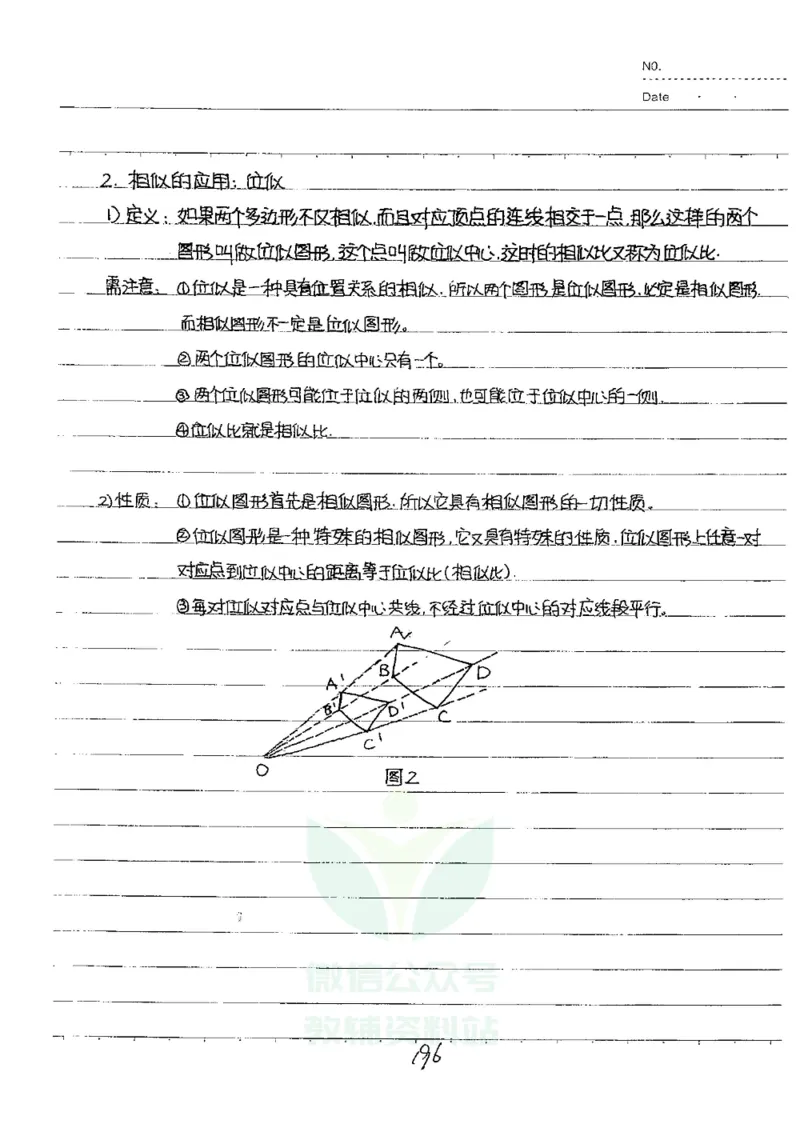 NO.
Date
2. 相似的应用：位似
1) 定义：如果两个多边形不仅相似，而且对应顶点的连线相交于一点，那么这样的两个
图形叫做位似图形，这个点叫做位似中心，这时的相似比又称为位似比．
需注意：①位似是一种具有位置关系的相似．所以两个图形是位似图形，必定是相似图形．
而相似图形不一定是位似图形。
②两个位似图形的位似中心只有一个。
③两个位似图形可能位于位似的两侧，也可能位于位似中心的一侧．
④位似比就是相似比．
2) 性质：①位似图形首先是相似图形．所以它具有相似图形的一切性质。
②位似图形是一种特殊的相似图形，它又具有特殊的性质．位似图形上任意一对
对应点到位似中心的距离等于位似比（相似比）．
③每对位似对应点与位似中心共线，不经过位似中心的对应线段平行。
A
B
D
A'
B'
D'
C
C'
O
图2
微信公众号
教辅资料站
196